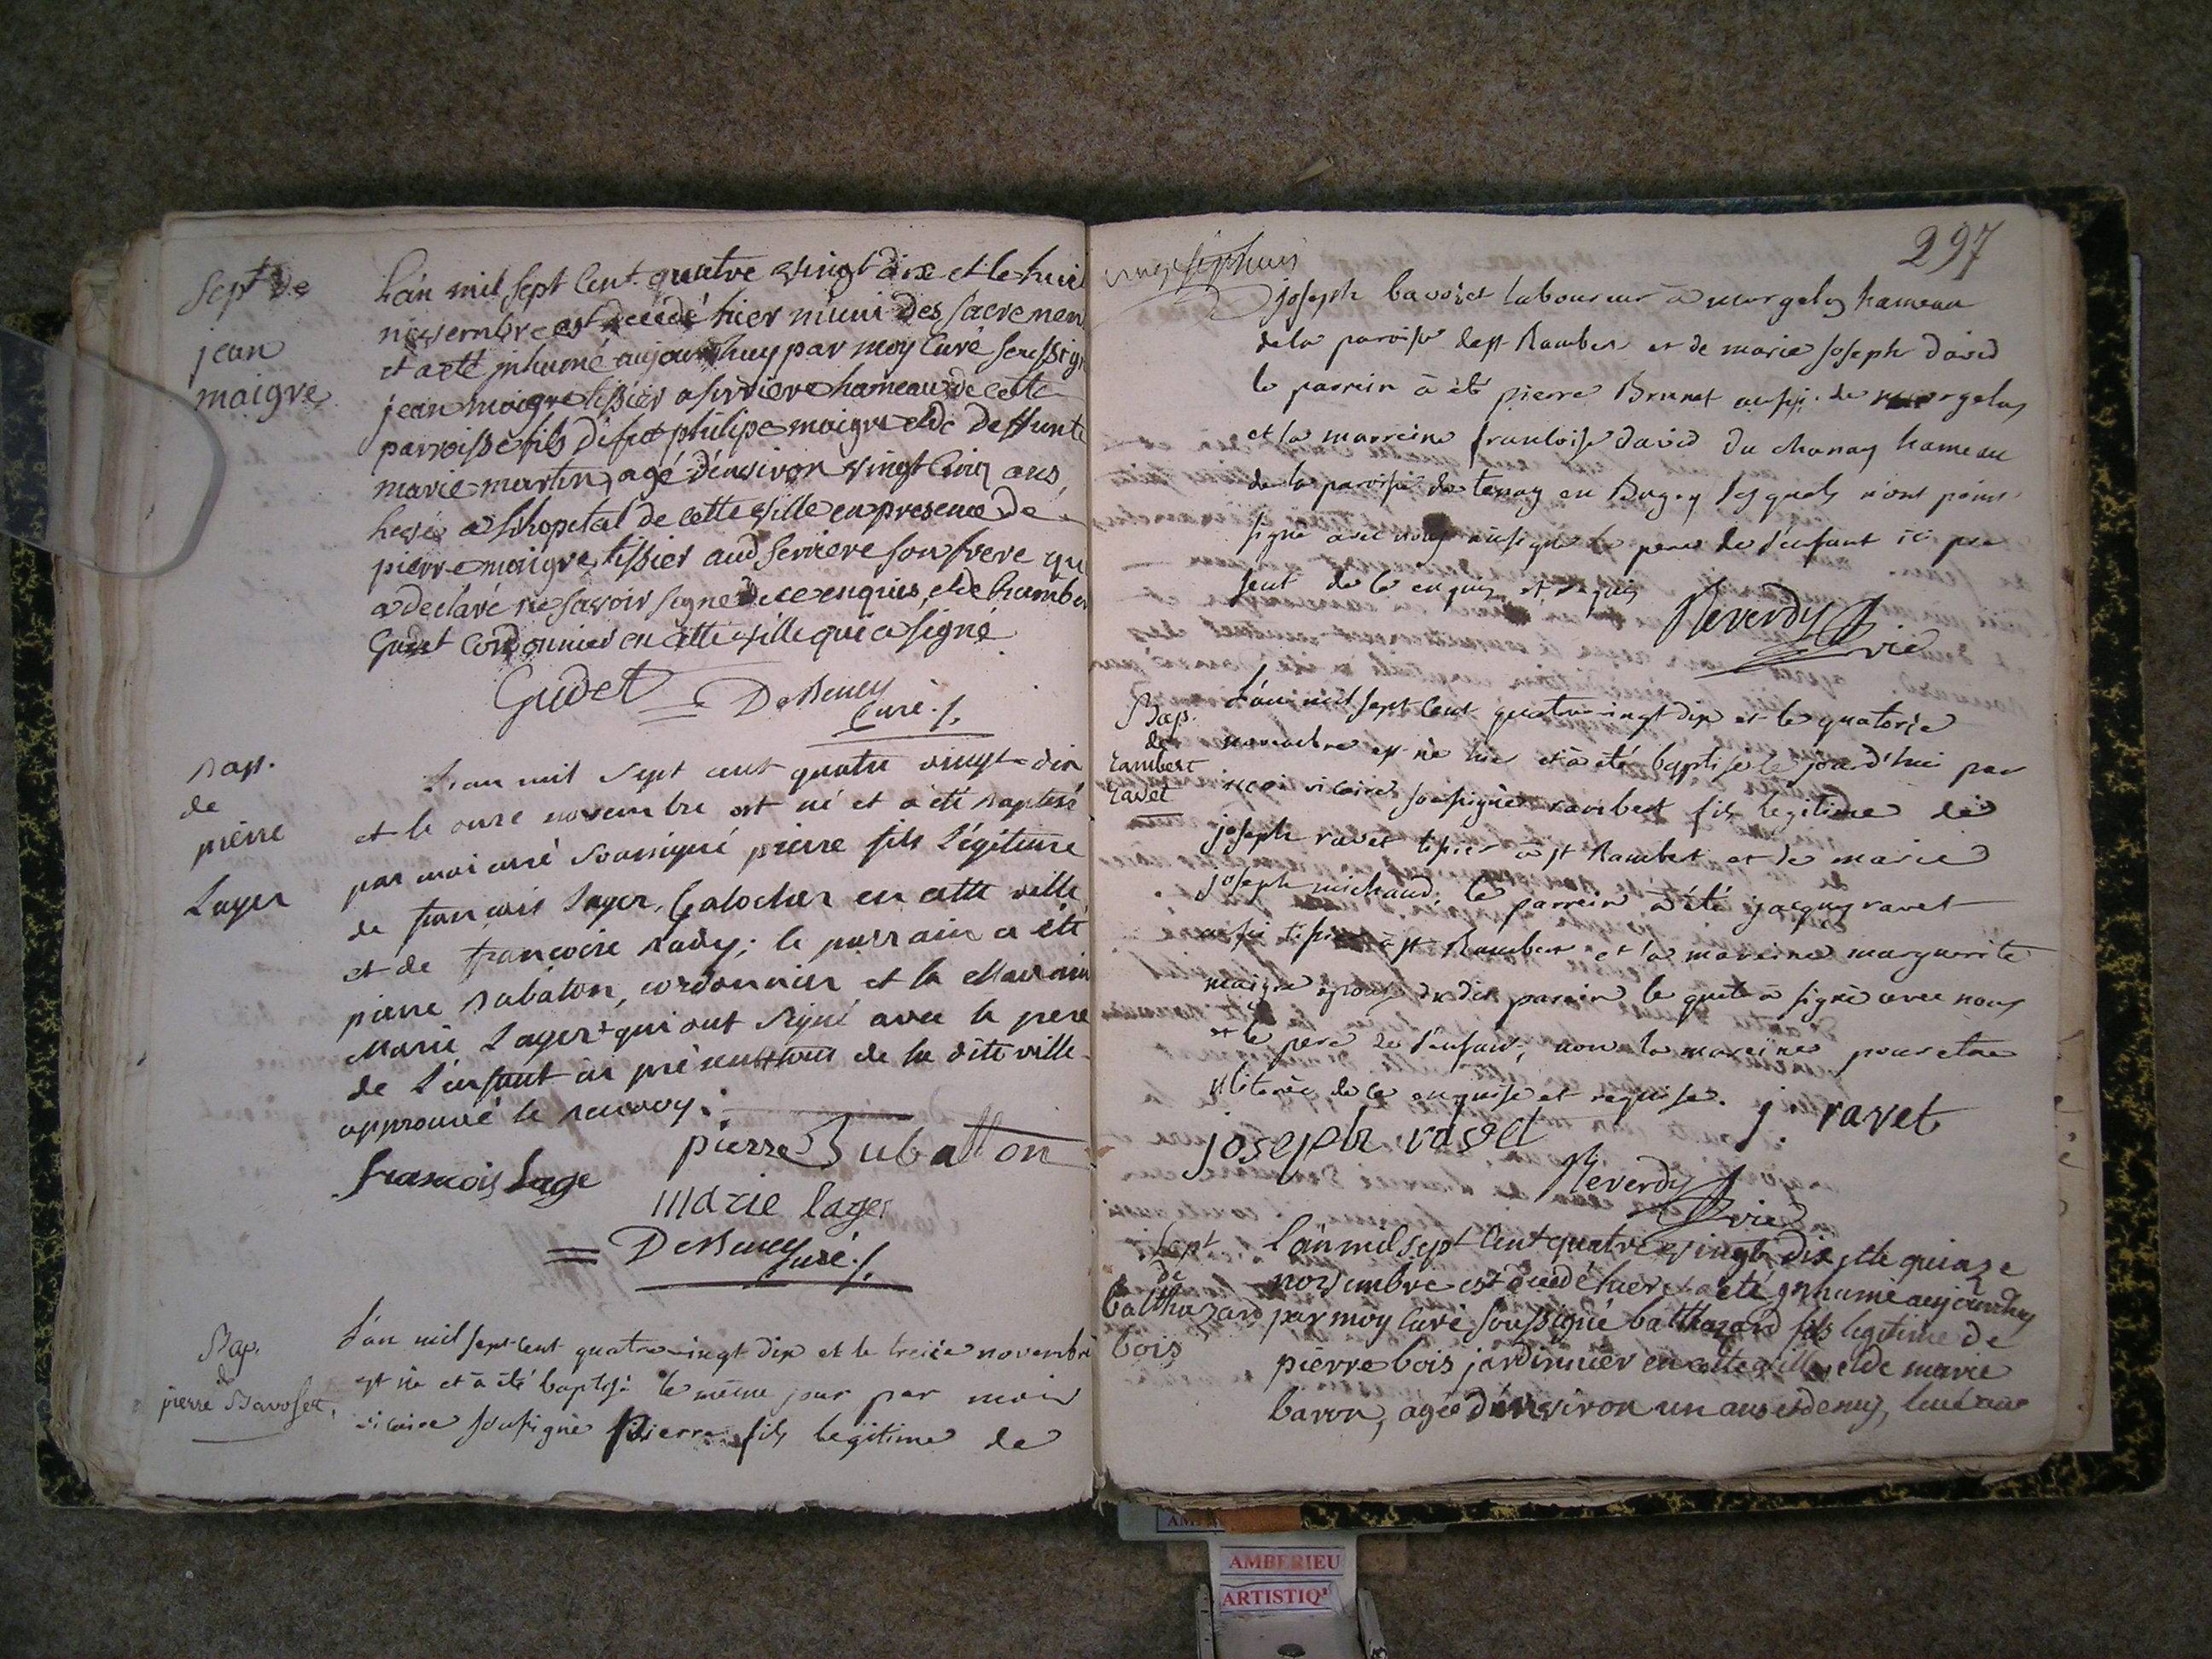 Sept. de
jean
maigre
L'an mil sept Cent quatre vingt dix et le huit
novembre est decédé hier muni des sacremen
et a eté inhumé aujourdhuy par moy Curé soussign
jean maigre tissier a serriere hameau de cette
parroisse fils defut philipe maigre et de deffunte
marie martin, agé d'environ vingt cinq ans,
a l'hopital de cette ville en presence de
pierre maigre tissier aud serriere son frere qu
a declaré ne savoir signé de ce enquis, et de humber
Gudet Cordonnier en cette ville qui a signé.
Gudet = DeBeney
Curé ./.
Bap.
de
pierre
Lager
L'an mil sept cent quatre vingt-dix
et le onze novembre est né et a été baptisé
par moi curé soussigné pierre fils Légitime
de françois Lager, Galocher en cette ville
et de françoise ; le parrain a été
pierre Bubaton, cordonnier et la Marraine
Marie Lager + qui ont signé avec le pere
de L'enfant ici présent de la dite ville
approuvé le renvoy.
françois Lage
pierre Bubatton
marie lager
= DeBeney Curé ./.
Bap.
de
pierre Bavoset,
L'an mil sept cent quatre vingt dix et le treize novembre
est né et à été baptisé le même jour par moi
vicaire sousigné Pierre fils legitime de
297
joseph bavozet laboureur à morgelas hameau
de la paroisse de st Rambert et de marie joseph david
le parrein à été pierre Brunet aussi de morgelas
et la marreine françoise david du chanay hameau
de la paroisse de tenay en Bugey lesquels n'ont point
signé avec nous ainsi que le pere de l'enfant ici pre
sent de ce enquis et requis
Reverdy vic
Bap.
de
rambert
ravet
L'an mil sept cent quatre vingt dix et le quatorze
novembre est né hier et à été baptisé le jourd'hui par
moi vicaire sousigné rambert fils legitime de
joseph ravet tissier à st Rambert et de marie
joseph michaud; le parrein a été jacques ravet
aussi tissier à st Rambert et la mareine marguerite
maigre epouse du dit parein le quel à signé avec nous
et le pere de l'enfant, non la mareine pour etre
illiterée de ce enquise et requise. j. ravet
joseph ravet
Reverdy vic
Sept
de
balthazard
bois
L'an mil sept Cent quatre vingt dix et le quinze
novembre est decédé hier et a eté inhumé aujourdhuy
par moy Curé soussigné balthazard fils legitime de
pierre bois jardinnier en cette ville et de marie
baron, agé d'environ un ans et demy,
AMBERIEU
ARTISTIQ'